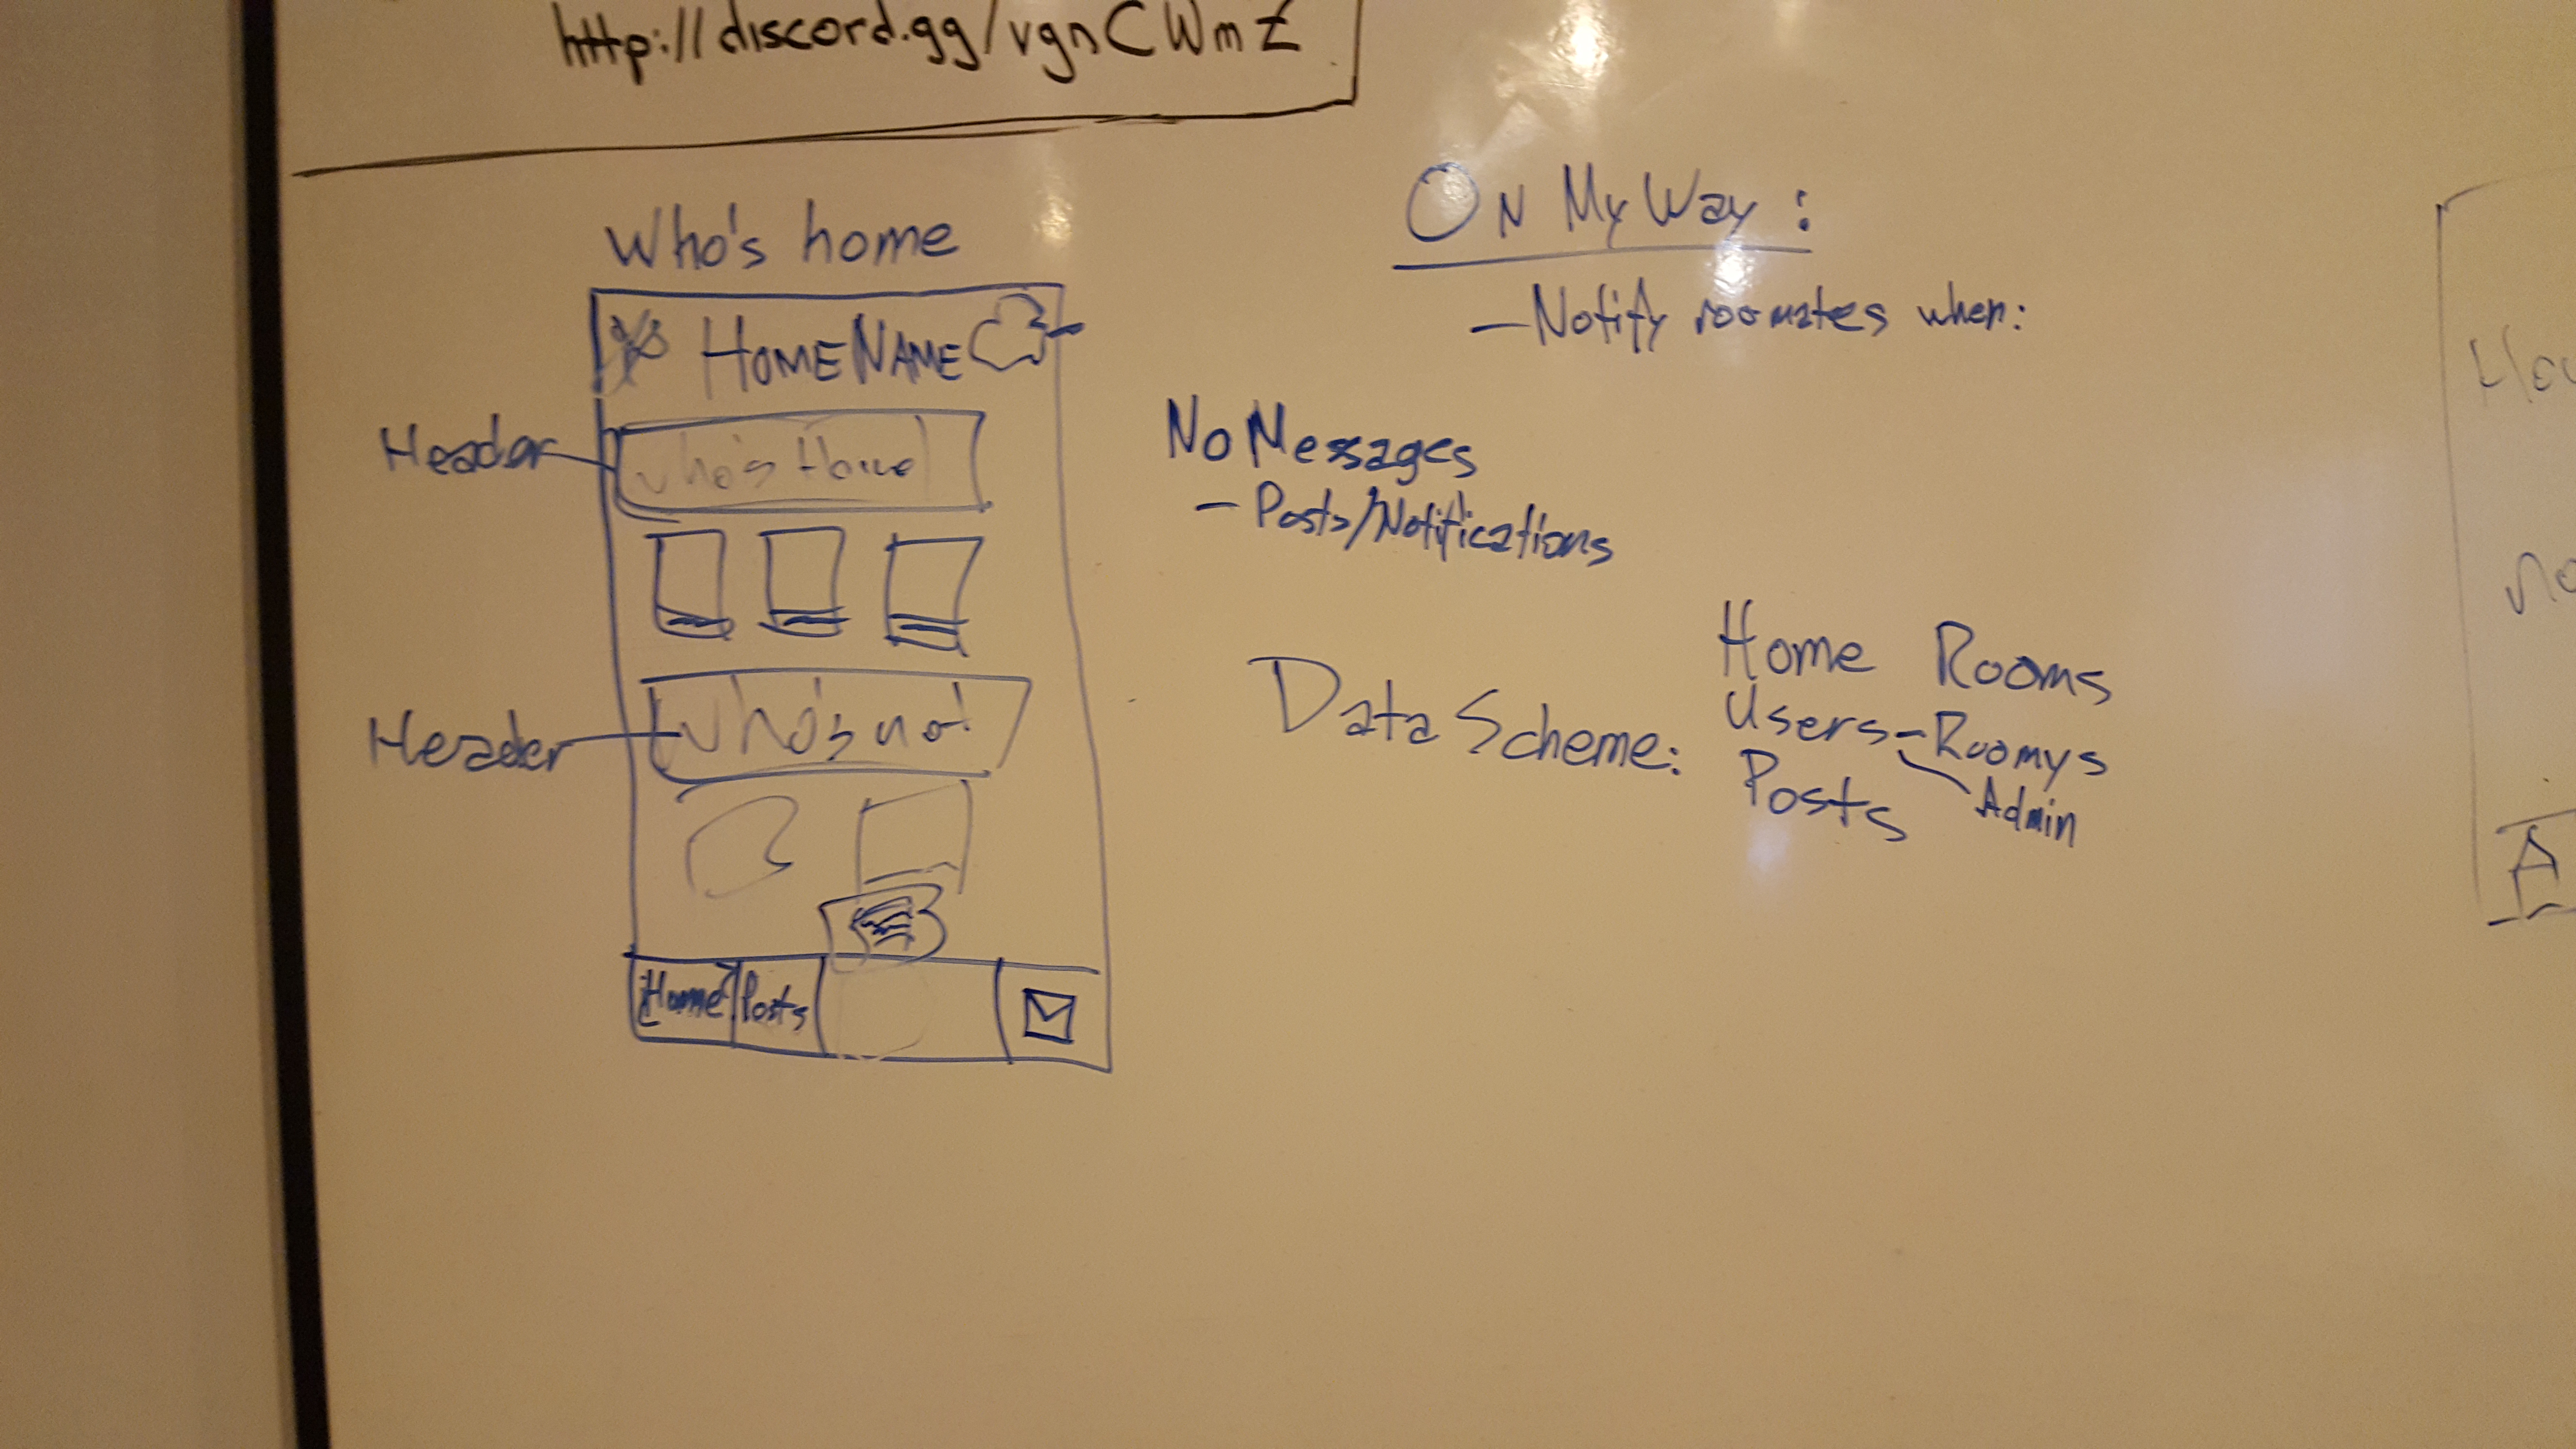 http://discord.gg/vgnCWmZ
Who's home
HOMENAME
Header
who's Home
Header
who's not
Home
Posts
ON MY Way:
- Notify roomates when:
No Messages
- Posts/Notifications
Data Scheme:
Home Rooms
Users - Roomys
Admin
Posts
A